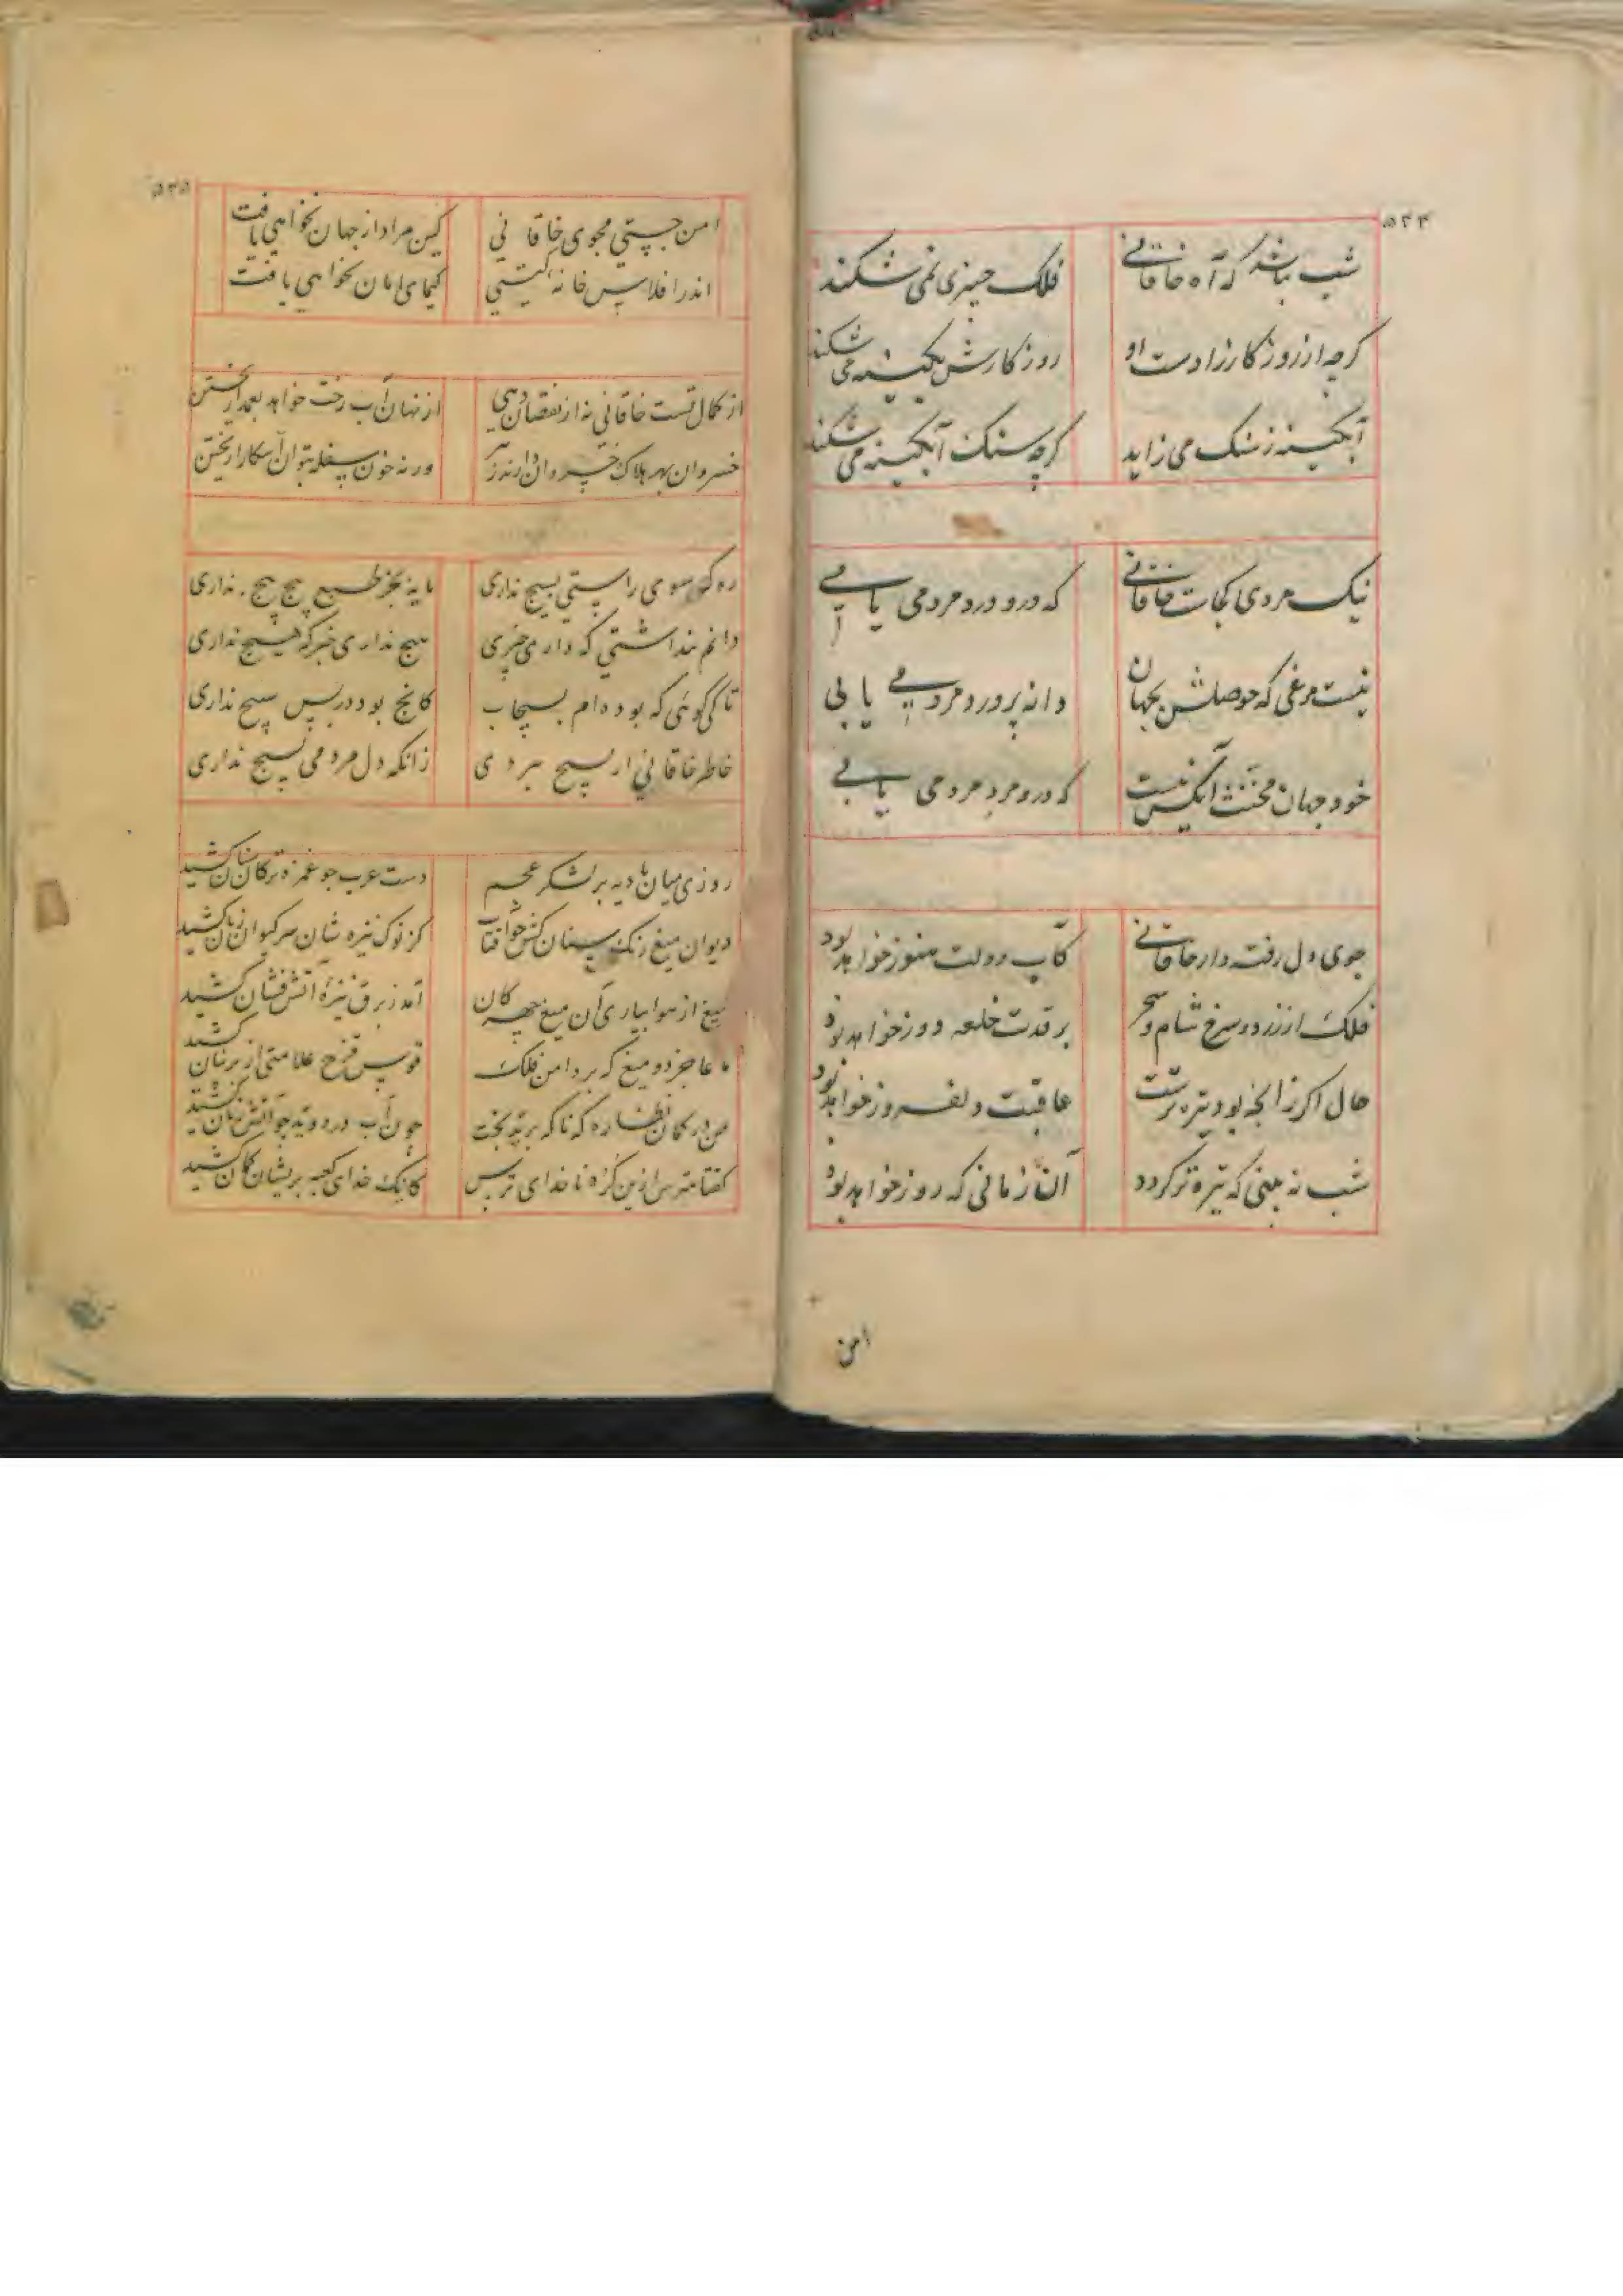 ۵۳۴
شب نباشد که آه خاقانی فلک چنبری نمی شکند
کرچه از روزکار زادست او روزکارش بکینه می شکند
آبکینه ز سنک می زاید کرچه سنک آبکینه می شکند
نیک مردی کجاست خاقانی که درو درد مردمی یابی
نیست مرغی که حوصلش بجهان دانه پرورد مردمی یابی
خود جهان مخنث آنکس نیست که درو مرد مردمی یابی
جوی دل رفته دار خاقانی کآب دولت هنوز خواهد بود
فلک از زرد و سرخ شام و سحر بر قدت خلعه دوز خواهد بود
حال اکرزانچه بود تیره ترست عاقبت دلفروز خواهد بود
شب نه بینی که تیره تر کردد آن زمانی که روز خواهد بود
امن
۵۳۵
امن جستی مجوی خاقانی کین مراد از جهان نخواهی یافت
اندر افلاس خانه کیتی کیمیای امان نخواهی یافت
از کمال تست خاقانی نه از نقصان دهی از نهان آب رخت خواهد بعمدا ریختن
خسروان بهر هلاک خسروان دارند زهر ورنه خون سفله بتوان آشکارا ریختن
ره که سوی راستی بسیج نداری مایه بجز طبع پیچ پیچ نداری
دانم پنداشتی که داری چیزی هیچ نداری خبر که هیچ نداری
تا کی کوئی که بوده ام بسیجاب کانچ بود در بسیج نداری
خاطر خاقانی ار بسیج ببردی زانکه دل مردمی بسیج نداری
روزی میان بادیه بر لشکر عجم دست عرب چو غمزه ترکان سنان کشید
دیوان میغ رنک سنان کش چو آفتاب کز نوک نیزه شان سر کیوان زیان کشید
میغ از هوا بیاری آن میغ چهرکان آمد ز برق نیزه آتش فشان کشید
ما عاجز دو میغ که بر دامن فلک قوس قزح علامتی از پرنیان کشید
من در کمان نظاره که ناکه برید بخت چون آب در دوید چو آتش زبان کشید
کفتا مترس ازین کره ناخدای ترس کاینک خدای کعبه بریشان کمان کشید